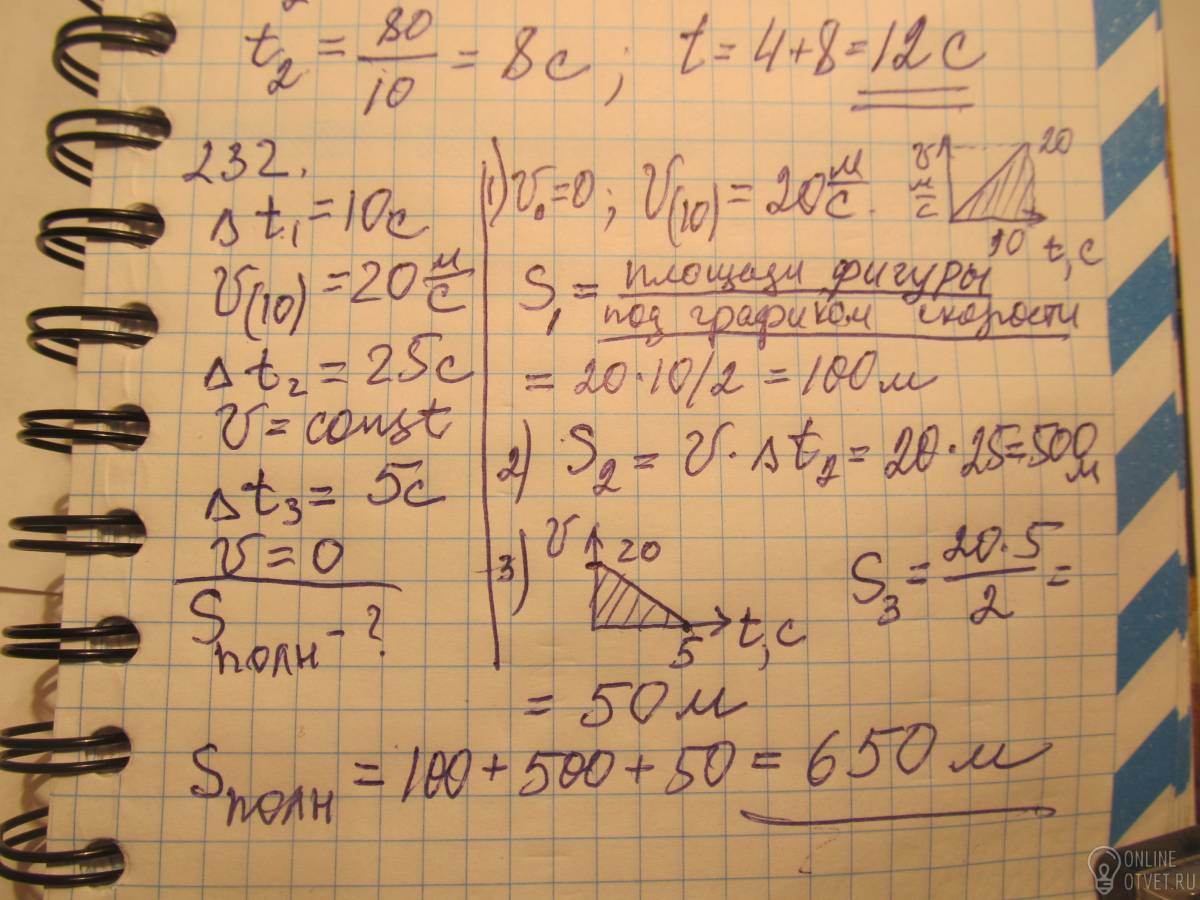 t₂ = 80/10 = 8с ; t = 4+8 = 12с
232.
Δt₁ = 10с
V(10) = 20 м/с
Δt₂ = 25с
V = const
Δt₃ = 5с
V = 0
Sполн - ?
1) V₀=0 ; V(10) = 20 м/с.
V м/с 20
10 t, с
S₁ = площади фигуры
под графиком скорости
= 20·10/2 = 100м
2) S₂ = V·Δt₂ = 20·25=500м
3) V 20
5 t, с
S₃ = 20·5/2 =
= 50 м
Sполн = 100+500+50 = 650 м
ONLINE
OTVET.RU